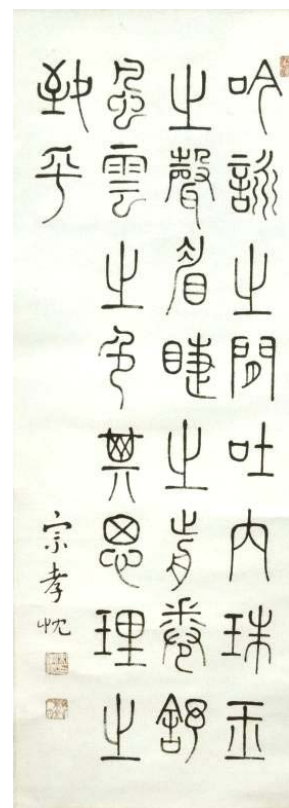 吟詠之間吐內珠玉
之聲眉睫之前卷舒
風雲之色其思理之
致乎
宗孝忱